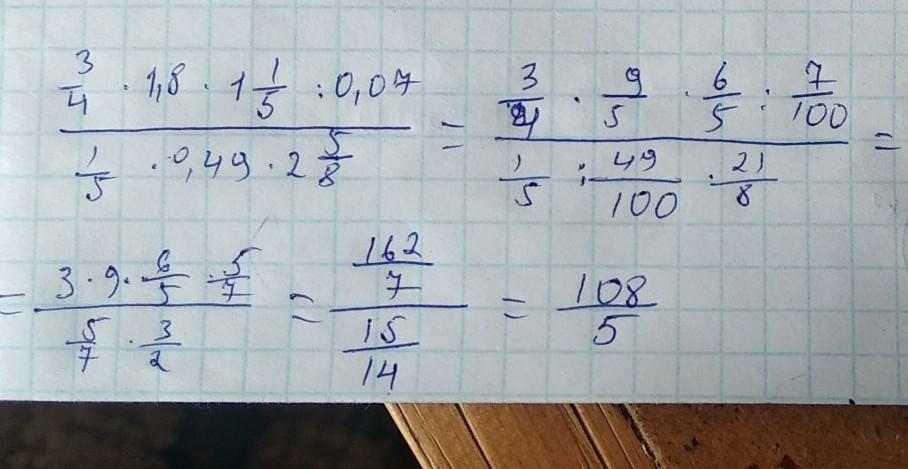 3/4 · 1,8 · 1 1/5 : 0,07 / 1/5 · 0,49 · 2 5/8 = 3/4 · 9/5 · 6/5 : 7/100 / 1/5 : 49/100 · 21/8 =
= 3 · 9 · 6/5 · 5/7 / 5/7 · 3/2 = 162/7 / 15/14 = 108/5